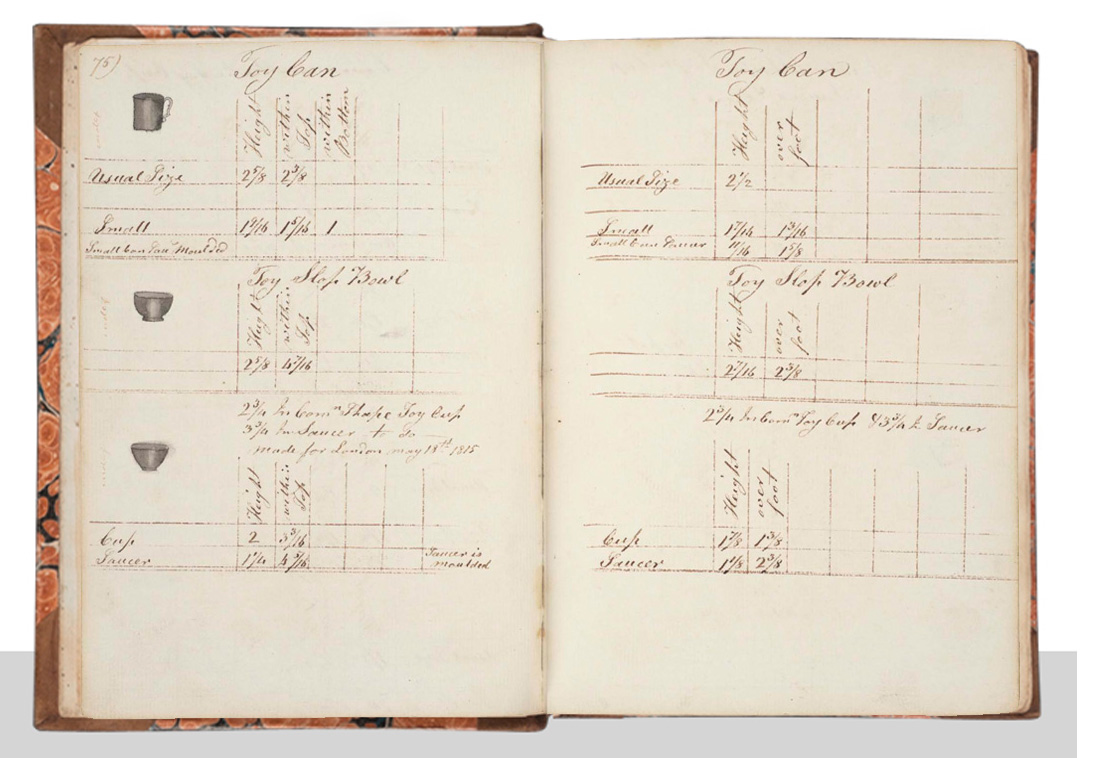 75)
Toy Can
Height
within Top
within Bottom
Usual Size 2 5/8 2 3/8
Small 1 9/16 1 5/16 1
Small Can Moulded
Toy Slop Bowl
Height
within Top
2 5/8 4 7/16
2 3/4 In Com Shape Toy Cup
3 3/4 In Saucer to Do
made for London may 18th 1815
Height
within Top
Cup 2 3 3/16
Saucer 1 1/4 4 3/16 Saucer is moulded
Toy Can
Height
over foot
Usual Size 2 1/2
Small 1 7/16 1 3/16
Small Can Saucer 11/16 1 5/8
Toy Slop Bowl
Height
over foot
2 7/16 2 3/8
2 3/4 In Com Toy Cup & 3 3/4 In Saucer
Height
over foot
Cup 1 7/8 1 3/8
Saucer 1 1/8 2 3/8